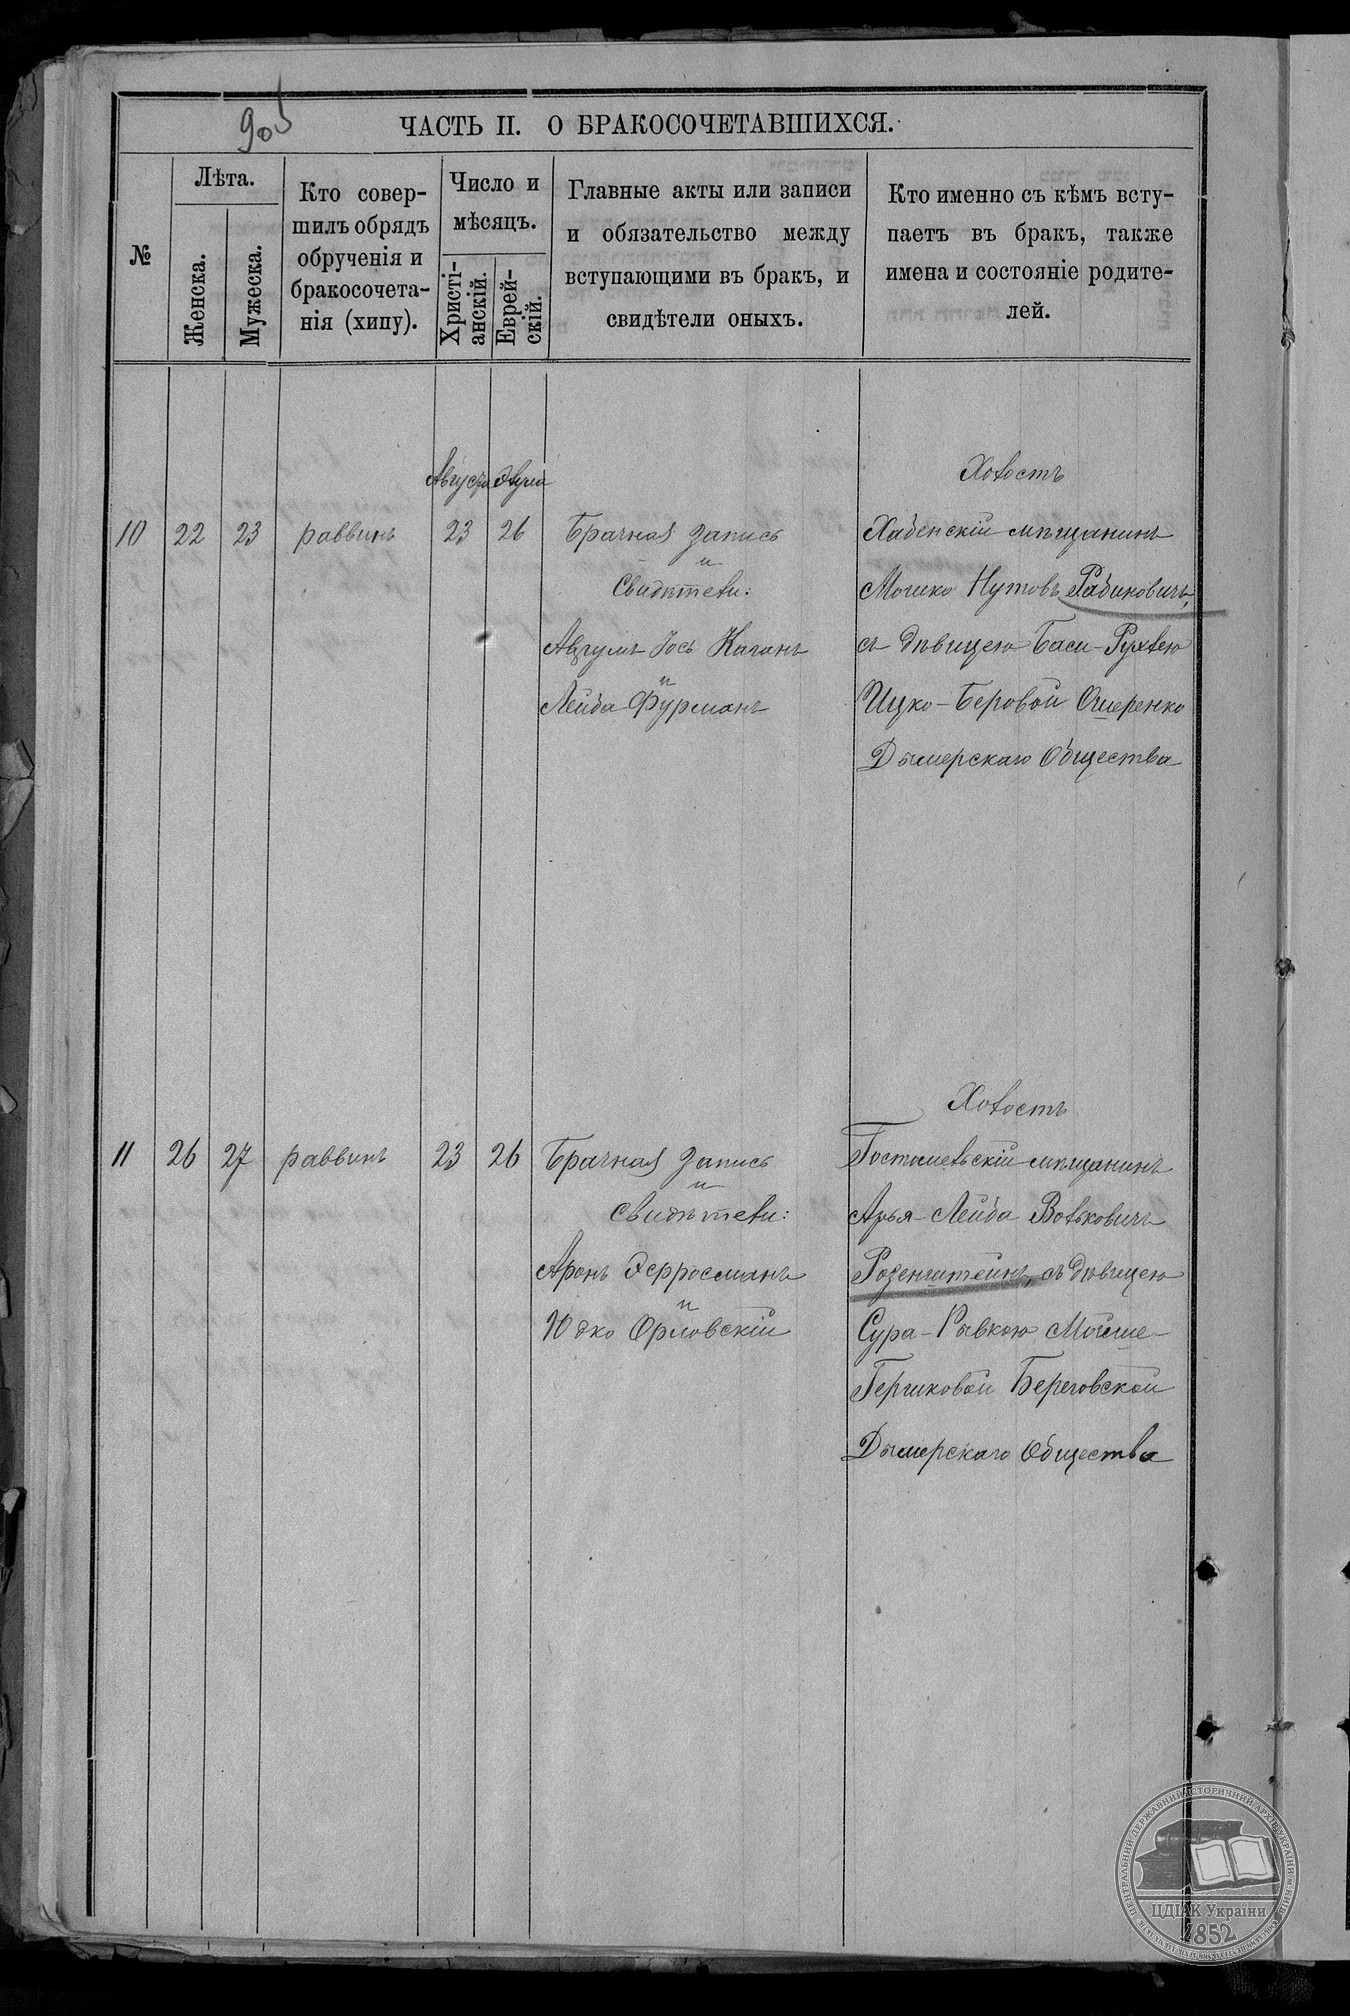 905
ЧАСТЬ II. О БРАКОСОЧЕТАВШИХСЯ.
№
Лѣта.
Женска.
Мужеска.
Кто совер-
шилъ обрядъ
обрученія и
бракосочета-
нія (хипу).
Число и
мѣсяцъ.
Христі-
анскій.
Еврей-
скій.
Главные акты или записи
и обязательство между
вступающими въ бракъ, и
свидѣтели оныхъ.
Кто именно съ кѣмъ всту-
паетъ въ бракъ, также
имена и состояніе родите-
лей.
Августа Элула
Холостъ
10 22 23 раввинъ 23 26 Брачная запись
и
Свидѣтели:
Лейба Фурманъ
Хабенскій мѣщанинъ
Мошко Нутовъ Рабиновичъ,
съ дѣвицею Баси-Рухлею
Ицко-Беровой Ошеренко
Дымерскаго Общества
Холостъ
11 26 27 раввинъ 23 26 Брачная запись
и
свидѣтели:
Аронъ
и
Юдко Орловскій
Гостомельскій мѣщанинъ
Арья-Лейба Вольковичъ
Розенштейнъ, съ дѣвицею
Сура-Рывкою Мойше-
Гершковой Береговской
Дымерскаго Общества
ЦЕНТРАЛЬНИЙ ДЕРЖАВНИЙ ІСТОРИЧНИЙ АРХІВ УКРАЇНИ м. КИЇВ
ЦДІАК України
1852